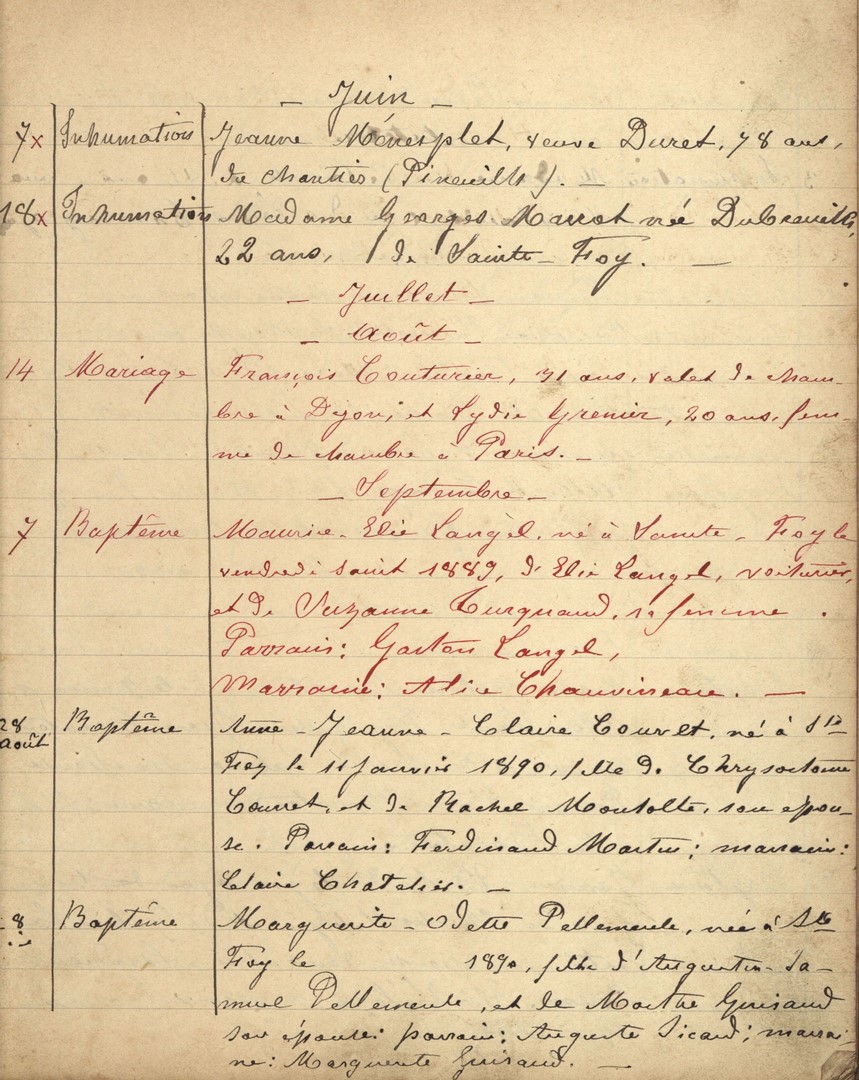 — Juin —
7 x Inhumation Jeanne Ménesplet, veuve Duret, 78 ans,
de (Pineuilh). —
18 x Inhumation Madame Georges Marrot née Dubreuilh,
22 ans, de Sainte-Foy. —
— Juillet —
— Août —
14 Mariage François Couturier, 31 ans, valet de cham-
bre à Dijon, et Lydie Grenier, 20 ans, fem-
me de chambre à Paris. —
— Septembre —
7 Baptême Maurice-Elie Langel, né à Sainte-Foy le
vendredi 1889, d'Elie Langel, voiturier,
et de Suzanne Turgnaud, sa femme.
Parrain: Gaston Langel,
Marraine: Alice Chauvineau. —
28 Août Baptême Anne-Jeanne-Claire Couret, né à Ste
Foy le 11 Janvier 1890, fille de Chrysostome
Couret, et de Rachel son épou-
se. Parrain: Ferdinand Martin; marraine:
Claire Chatelier. —
8 Baptême Marguerite-Odette Pellemeule, née à Ste
Foy le 1890, fille d'Augustin-Sa-
muel Pellemeule, et de Marthe Guisaud
son épouse; parrain: Auguste Sicard; marrai-
ne: Marguerite Guisaud. —